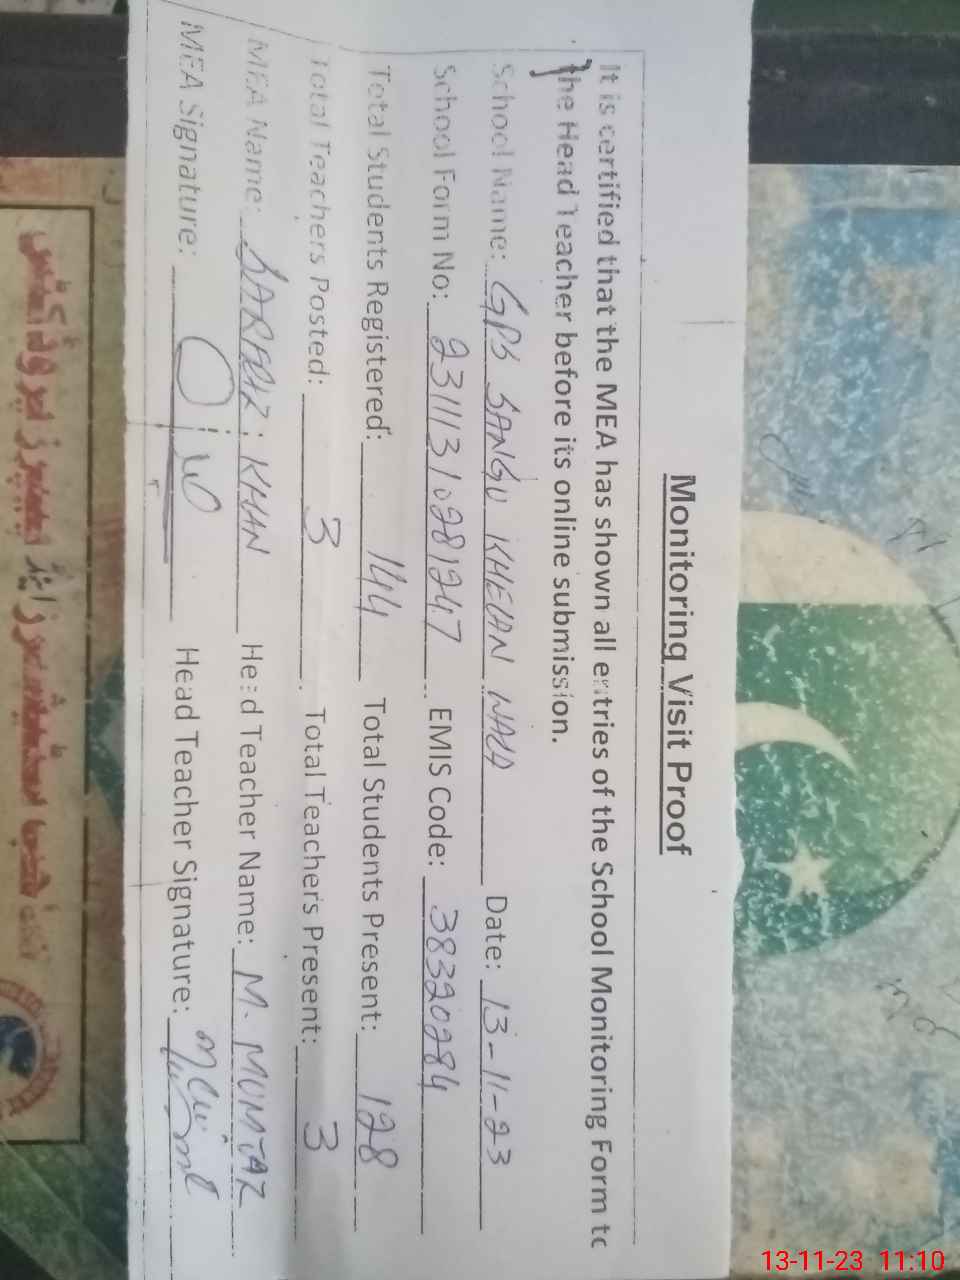 Monitoring Visit Proof
It is certified that the MEA has shown all entries of the School Monitoring Form to
the Head Teacher before its online submission.
School Name: GPS SANGU KHELAN WALA Date: 13-11-23
School Form No: 2311113102812417 EMIS Code: 38320284
Total Students Registered: 144 Total Students Present: 128
Total Teachers Posted: 3 Total Teachers Present: 3
MEA Name: SARFRAZ KHAN Head Teacher Name: M. MUMTAZ
MEA Signature: Head Teacher Signature:
13-11-23 11:10